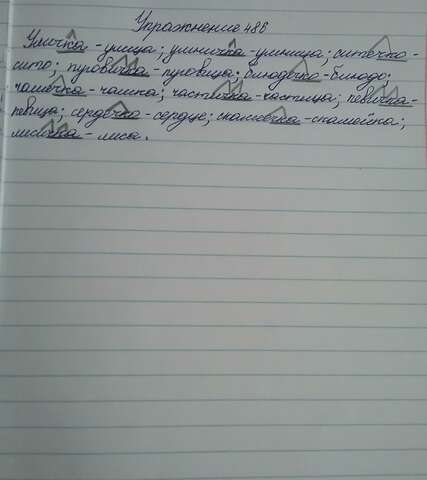 Упражнение 486
Уличка - улица; умничка - умница; ситечко -
сито; пуговичка - пуговица; блюдечко - блюдо;
чашечка - чашка; частичка - частица; певичка -
певица; сердечко - сердце; скамеечка - скамейка;
лисичка - лиса.